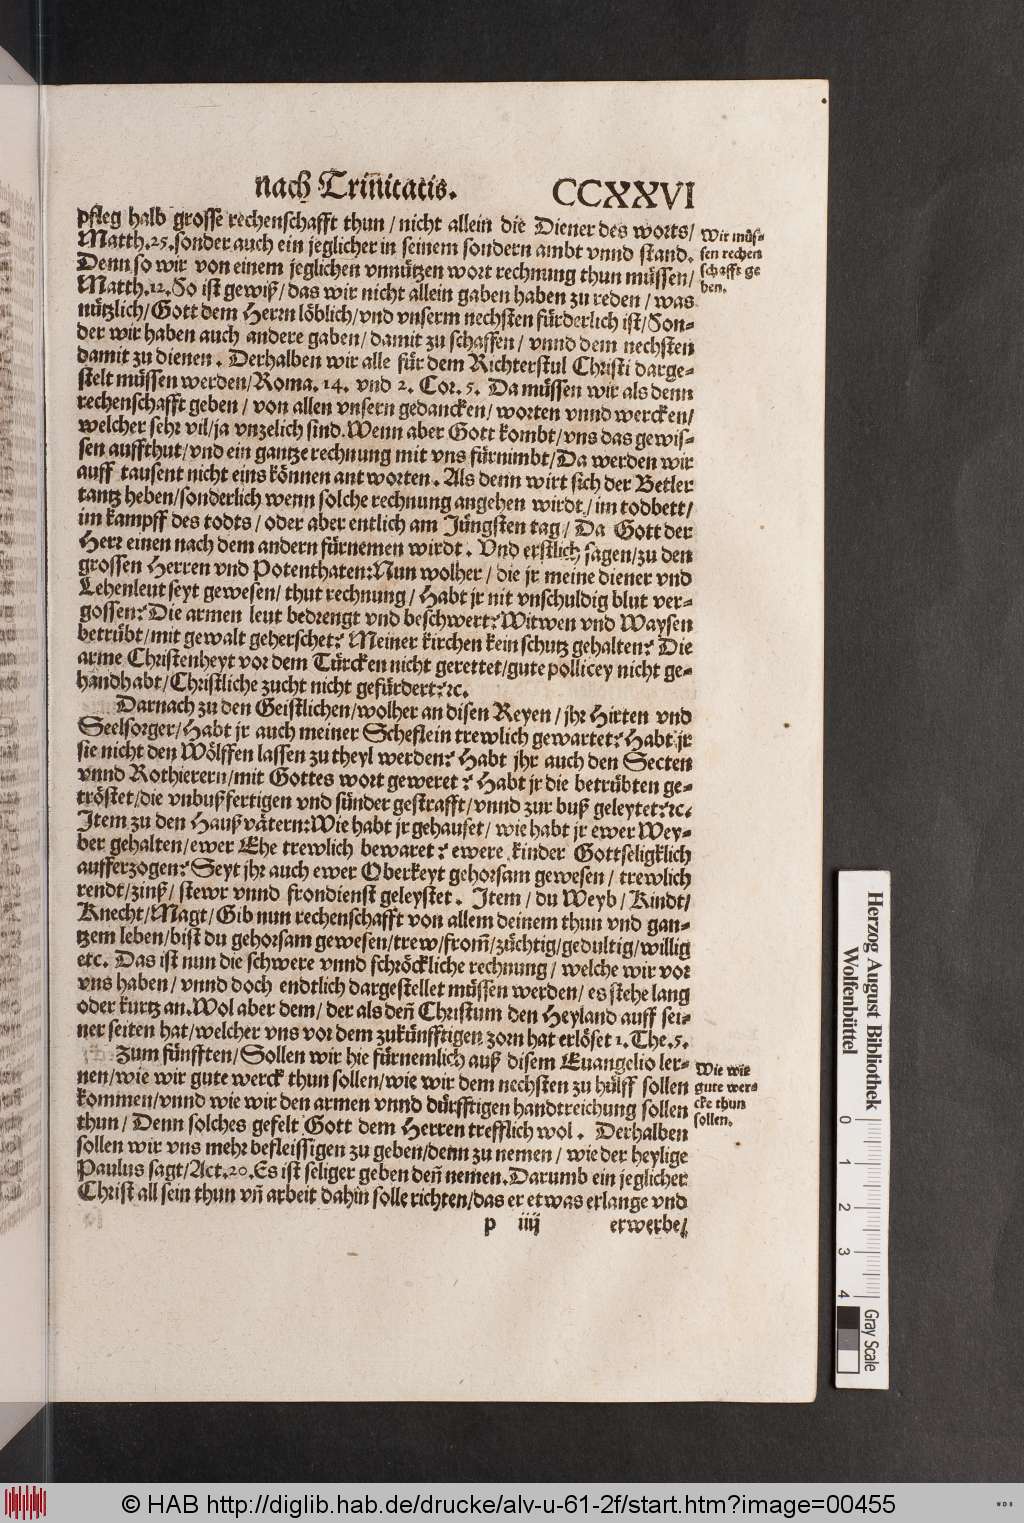 nach Trin̄itatis. CCXXVI
pfleg halb grosse rechenschafft thun / nicht allein die Diener des worts /
Matth. 25. sonder auch ein jeglicher in seinem sondern ambt vnnd stand.
Denn so wir von einem jeglichen vnnützen wort rechnung thun müssen /
Matth. 12. So ist gewiß / das wir nicht allein gaben haben zu reden / was
nützlich / Gott dem Herrn löblich / vnd vnserm nechsten fürderlich ist / Son-
der wir haben auch andere gaben / damit zu schaffen / vnnd dem nechsten
damit zu dienen. Derhalben wir alle für dem Richterstul Christi darge-
stelt müssen werden / Roma. 14. vnd 2. Cor. 5. Da müssen wir als denn
rechenschafft geben / von allen vnsern gedancken / worten vnnd wercken /
welcher sehr vil / ja vnzelich sind. Wenn aber Gott kombt / vns das gewis-
sen auffthut / vnd ein gantze rechnung mit vns fürnimbt / Da werden wir
auff tausent nicht eins können antworten. Als denn wirt sich der Betler
tantz heben / sonderlich wenn solche rechnung angehen wirdt / im todbett /
im kampff des todts / oder aber entlich am Jüngsten tag / Da Gott der
Herr einen nach dem andern fürnemen wirdt. Vnd erstlich sagen / zu den
grossen Herren vnd Potenthaten: Nun wolher / die jr meine diener vnd
Lehenleut seyt gewesen / thut rechnung / Habt jr nit vnschuldig blut ver-
gossen? Die armen leut bedrengt vnd beschwert? Witwen vnd Waysen
betrübt / mit gewalt geherschet? Meiner kirchen kein schutz gehalten? Die
arme Christenheyt vor dem Türcken nicht gerettet / gute pollicey nicht ge-
handhabt / Christliche zucht nicht gefürdert? ꝛc.
Darnach zu den Geistlichen / wolher an disen Reyen / jhr Hirten vnd
Seelsorger / Habt jr auch meiner Scheflein trewlich gewartet? Habt jr
sie nicht den Wölffen lassen zu theyl werden? Habt jhr auch den Secten
vnnd Rothierern / mit Gottes wort geweret? Habt jr die betrübten ge-
tröstet / die vnbußfertigen vnd sünder gestrafft / vnnd zur buß geleytet? ꝛc.
Item zu den Haußvätern: Wie habt jr gehauset / wie habt jr ewer Wey-
ber gehalten / ewer Ehe trewlich bewaret? ewere kinder Gottseligklich
aufferzogen? Seyt jhr auch ewer Oberkeyt gehorsam gewesen / trewlich
rendt / zinß / stewr vnnd frondienst geleystet. Item / du Weyb / Kindt /
Knecht / Magt / Gib nun rechenschafft von allem deinem thun vnd gan-
tzem leben / bist du gehorsam gewesen / trew / from̄ / züchtig / gedultig / willig
etc. Das ist nun die schwere vnnd schröckliche rechnung / welche wir vor
vns haben / vnnd doch endtlich dargestellet müssen werden / es stehe lang
oder kurtz an. Wol aber dem / der als den̄ Christum den Heyland auff sei-
ner seiten hat / welcher vns vor dem zukünfftigen zorn hat erlöset 1. The. 5.
Zum fünfften / Sollen wir hie fürnemlich auß disem Euangelio ler-
nen / wie wir gute werck thun sollen / wie wir dem nechsten zu hülff sollen
kommen / vnnd wie wir den armen vnnd dürfftigen handtreichung sollen
thun / Denn solches gefelt Gott dem Herren trefflich wol. Derhalben
sollen wir vns mehr befleissigen zu geben / denn zu nemen / wie der heylige
Paulus sagt / Act. 20. Es ist seliger geben den̄ nemen. Darumb ein jeglicher
Christ all sein thun vn̄ arbeit dahin solle richten / das er etwas erlange vnd
p iiij erwerbe /
Wir müs-
sen rechen
schafft ge
ben.
Wie wir
gute wer-
cke thun
sollen.
Herzog August Bibliothek
Wolfenbüttel
0 1 2 3 4
Gray Scale
© HAB http://diglib.hab.de/drucke/alv-u-61-2f/start.htm?image=00455
WDB